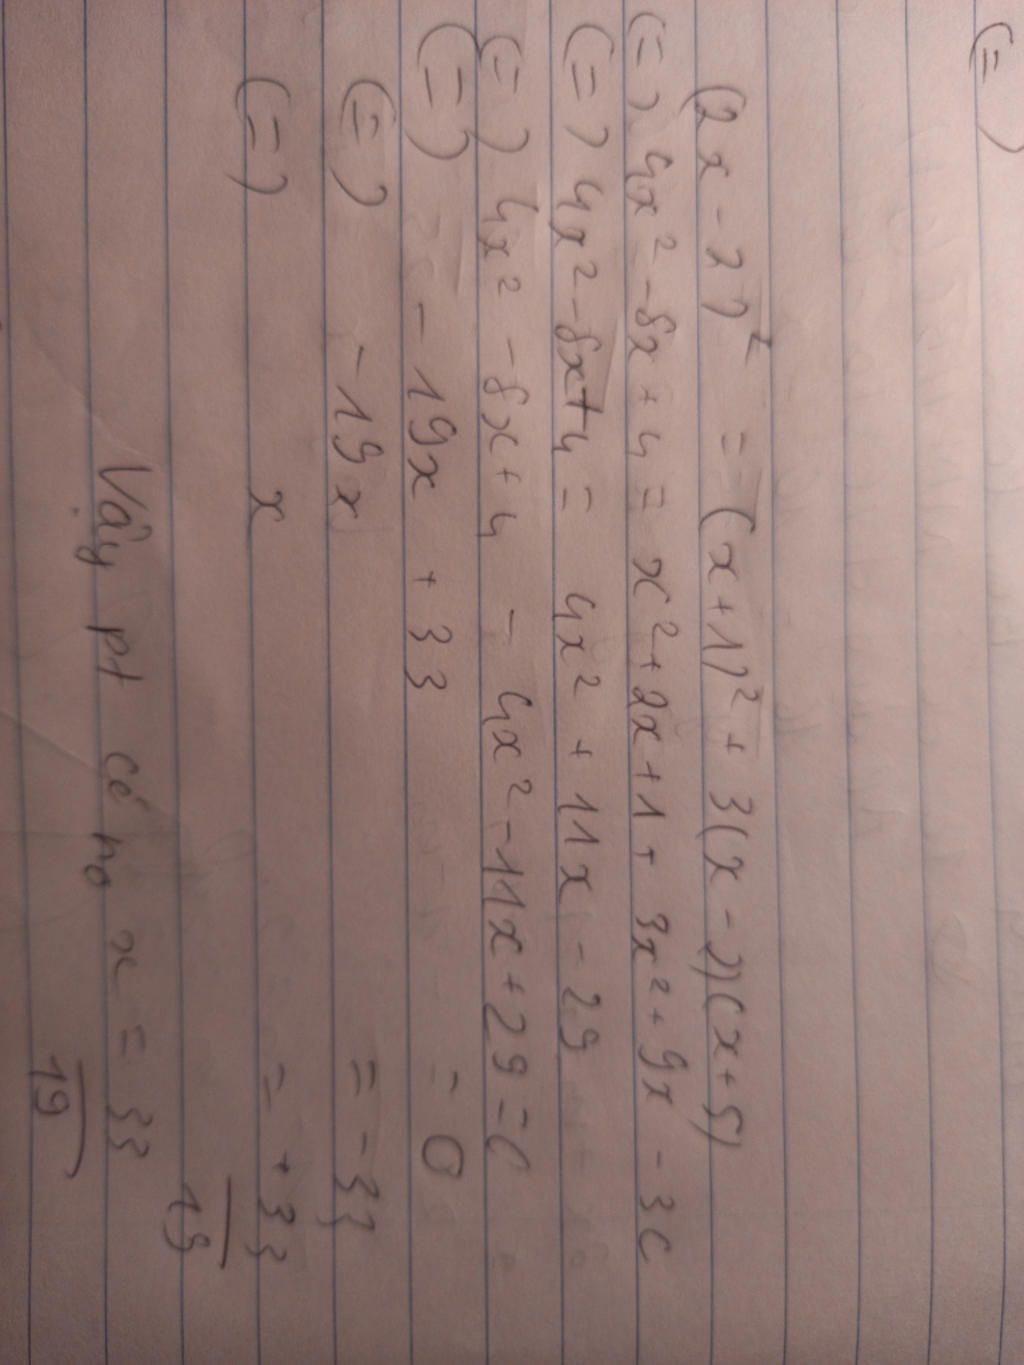 (=)
(2x - 2)² = (x+1)² + 3(x - 2)(x+5)
(=) 4x² - 8x + 4 = x² + 2x + 1 + 3x² + 9x - 30
(=) 4x² - 8x + 4 = 4x² + 11x - 29
(=) 4x² - 8x + 4 - 4x² - 11x + 29 = 0
(=) - 19x + 33 = 0
(=) - 19x = - 33
(=) x = + 33/19
Vậy pt có no x = 33/19